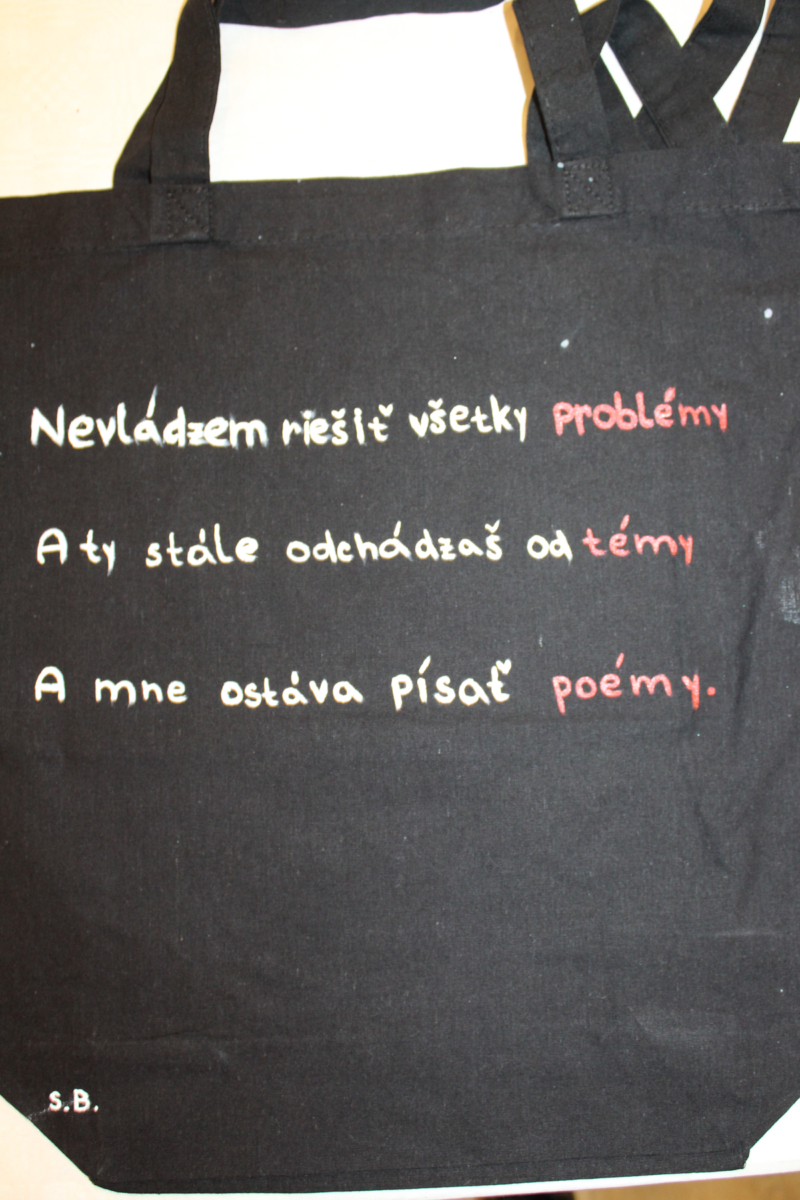 Nevládzem riešiť všetky problémy
A ty stále odchádzaš od témy
A mne ostáva písať poémy.
S.B.